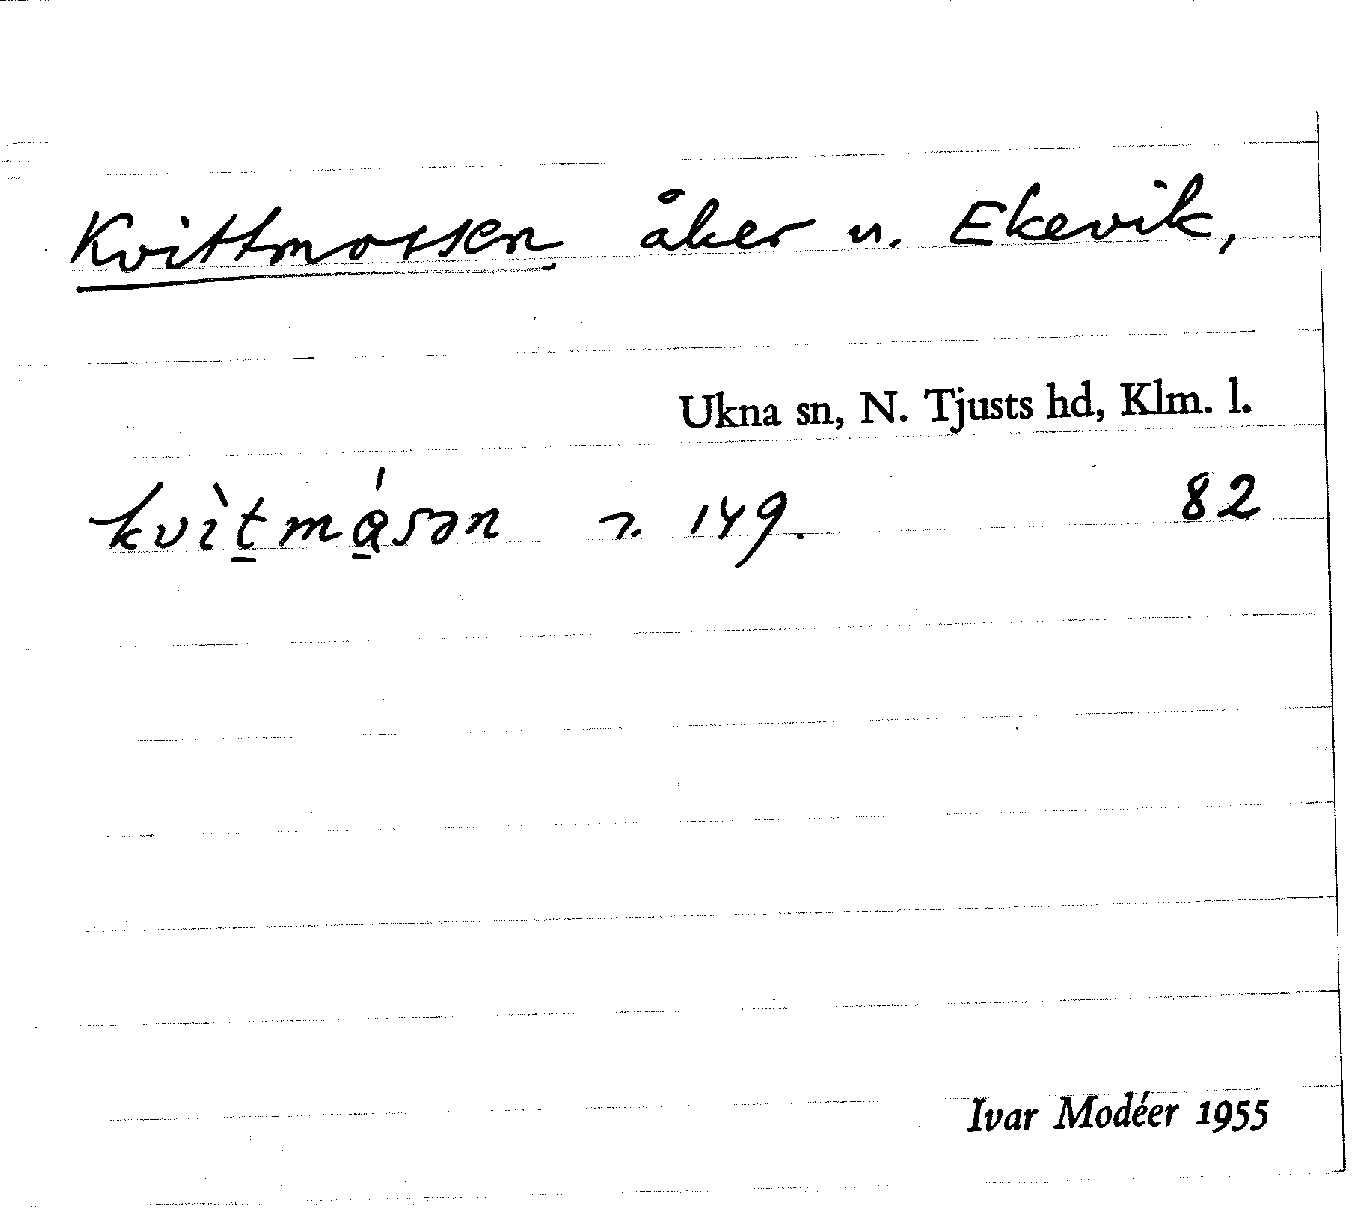 Kvittmossen åker u. Ekevik,
Ukna sn, N. Tjusts hd, Klm. l.
kvìt̲má̲sən n. 149. 82
Ivar Modéer 1955